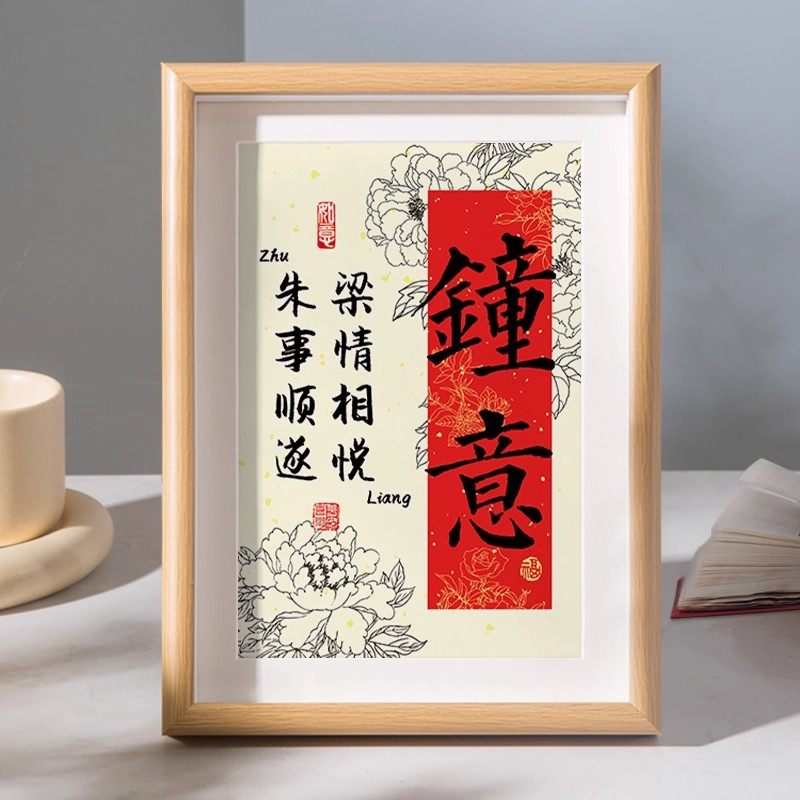 鐘意
梁情相悦
Liang
Zhu
朱事顺遂
如意
福